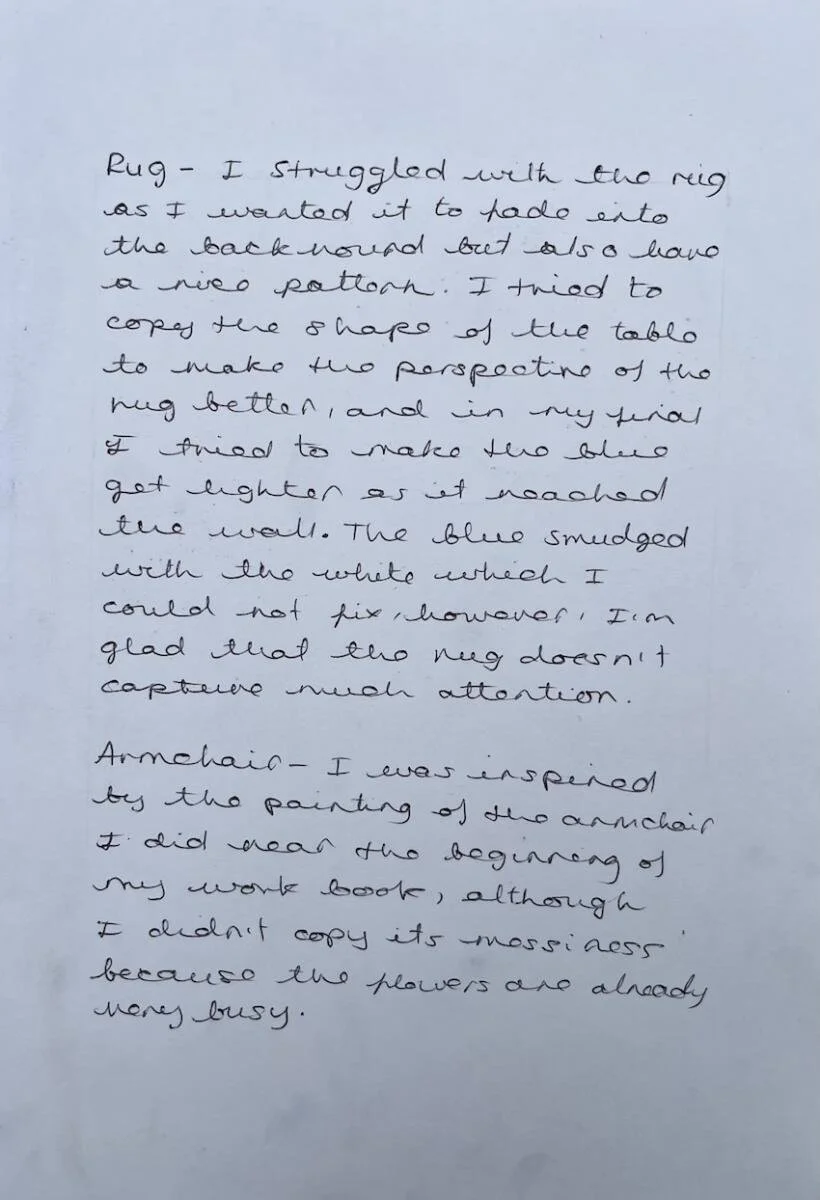 Rug - I struggled with the rug
as I wanted it to fade into
the background but also have
a nice pattern. I tried to
copy the shape of the table
to make the perspective of the
rug better, and in my final
I tried to make the blue
get lighter as it reached
the wall. The blue smudged
with the white which I
could not fix, however, I'm
glad that the rug doesn't
capture much attention.
Armchair - I was inspired
by the painting of the armchair
I did near the beginning of
my work book, although
I didn't copy its messiness
because the flowers are already
very busy.